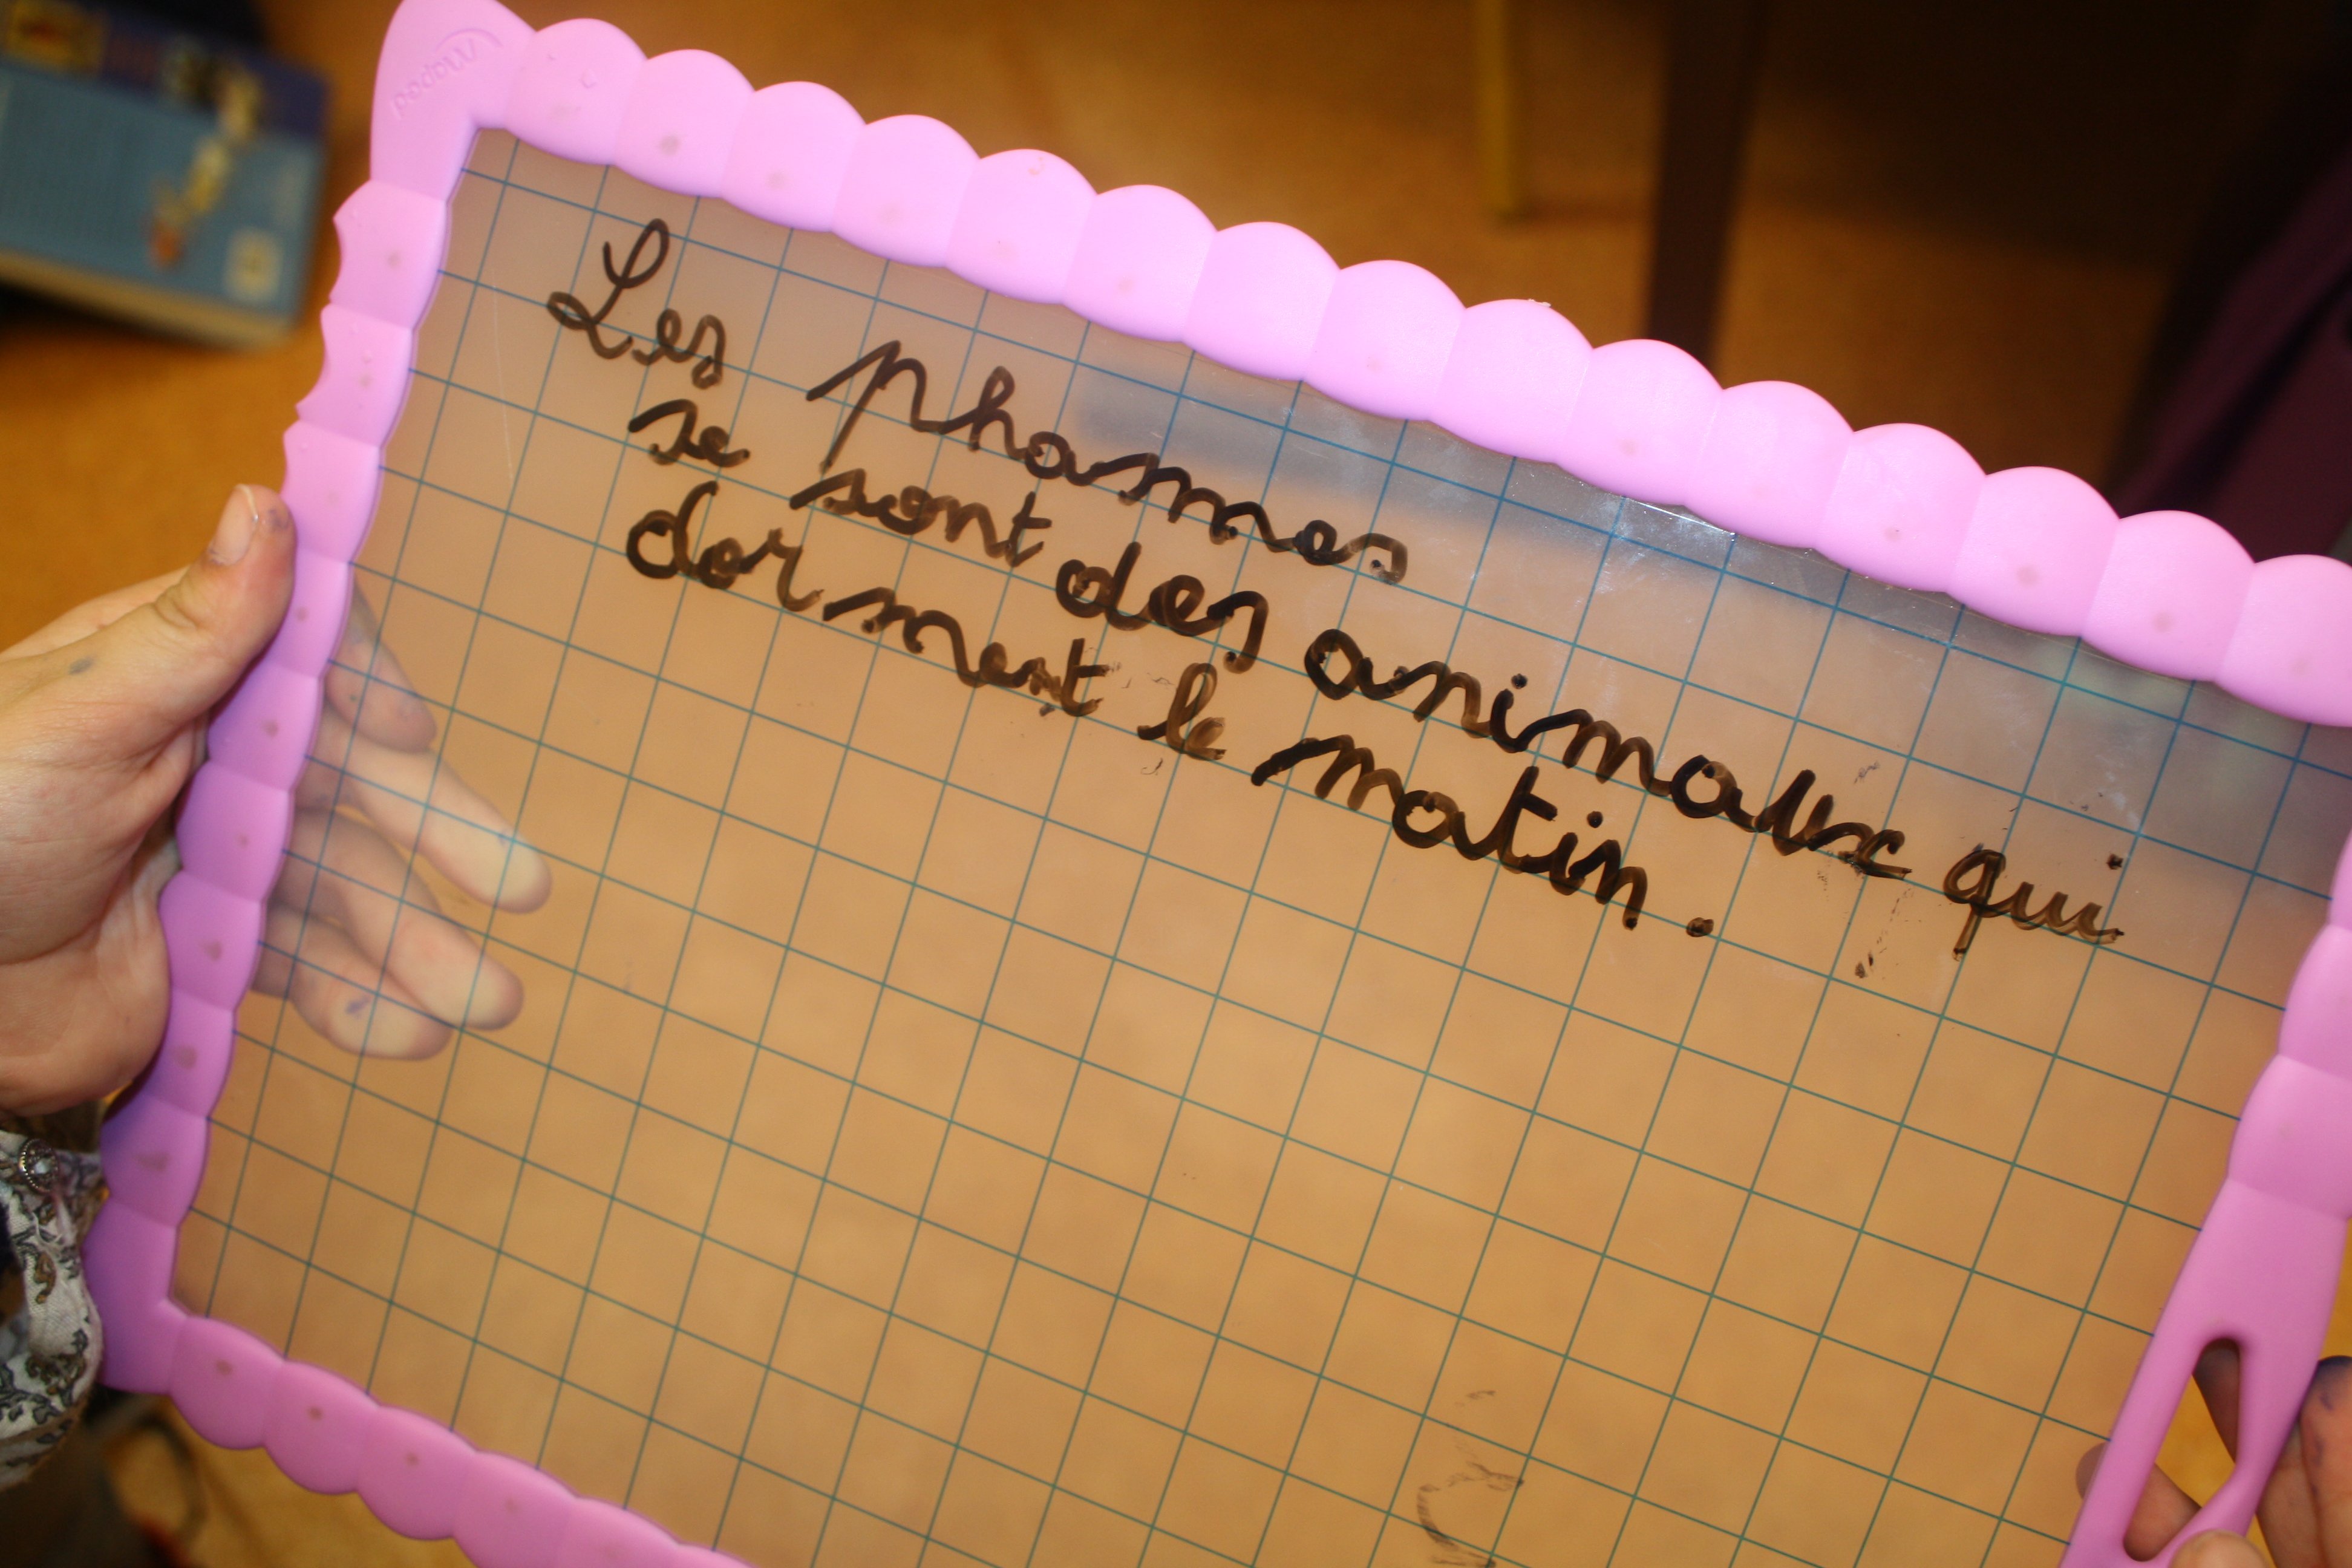 Les phasmes
se sont des animaux qui
dorment le matin.